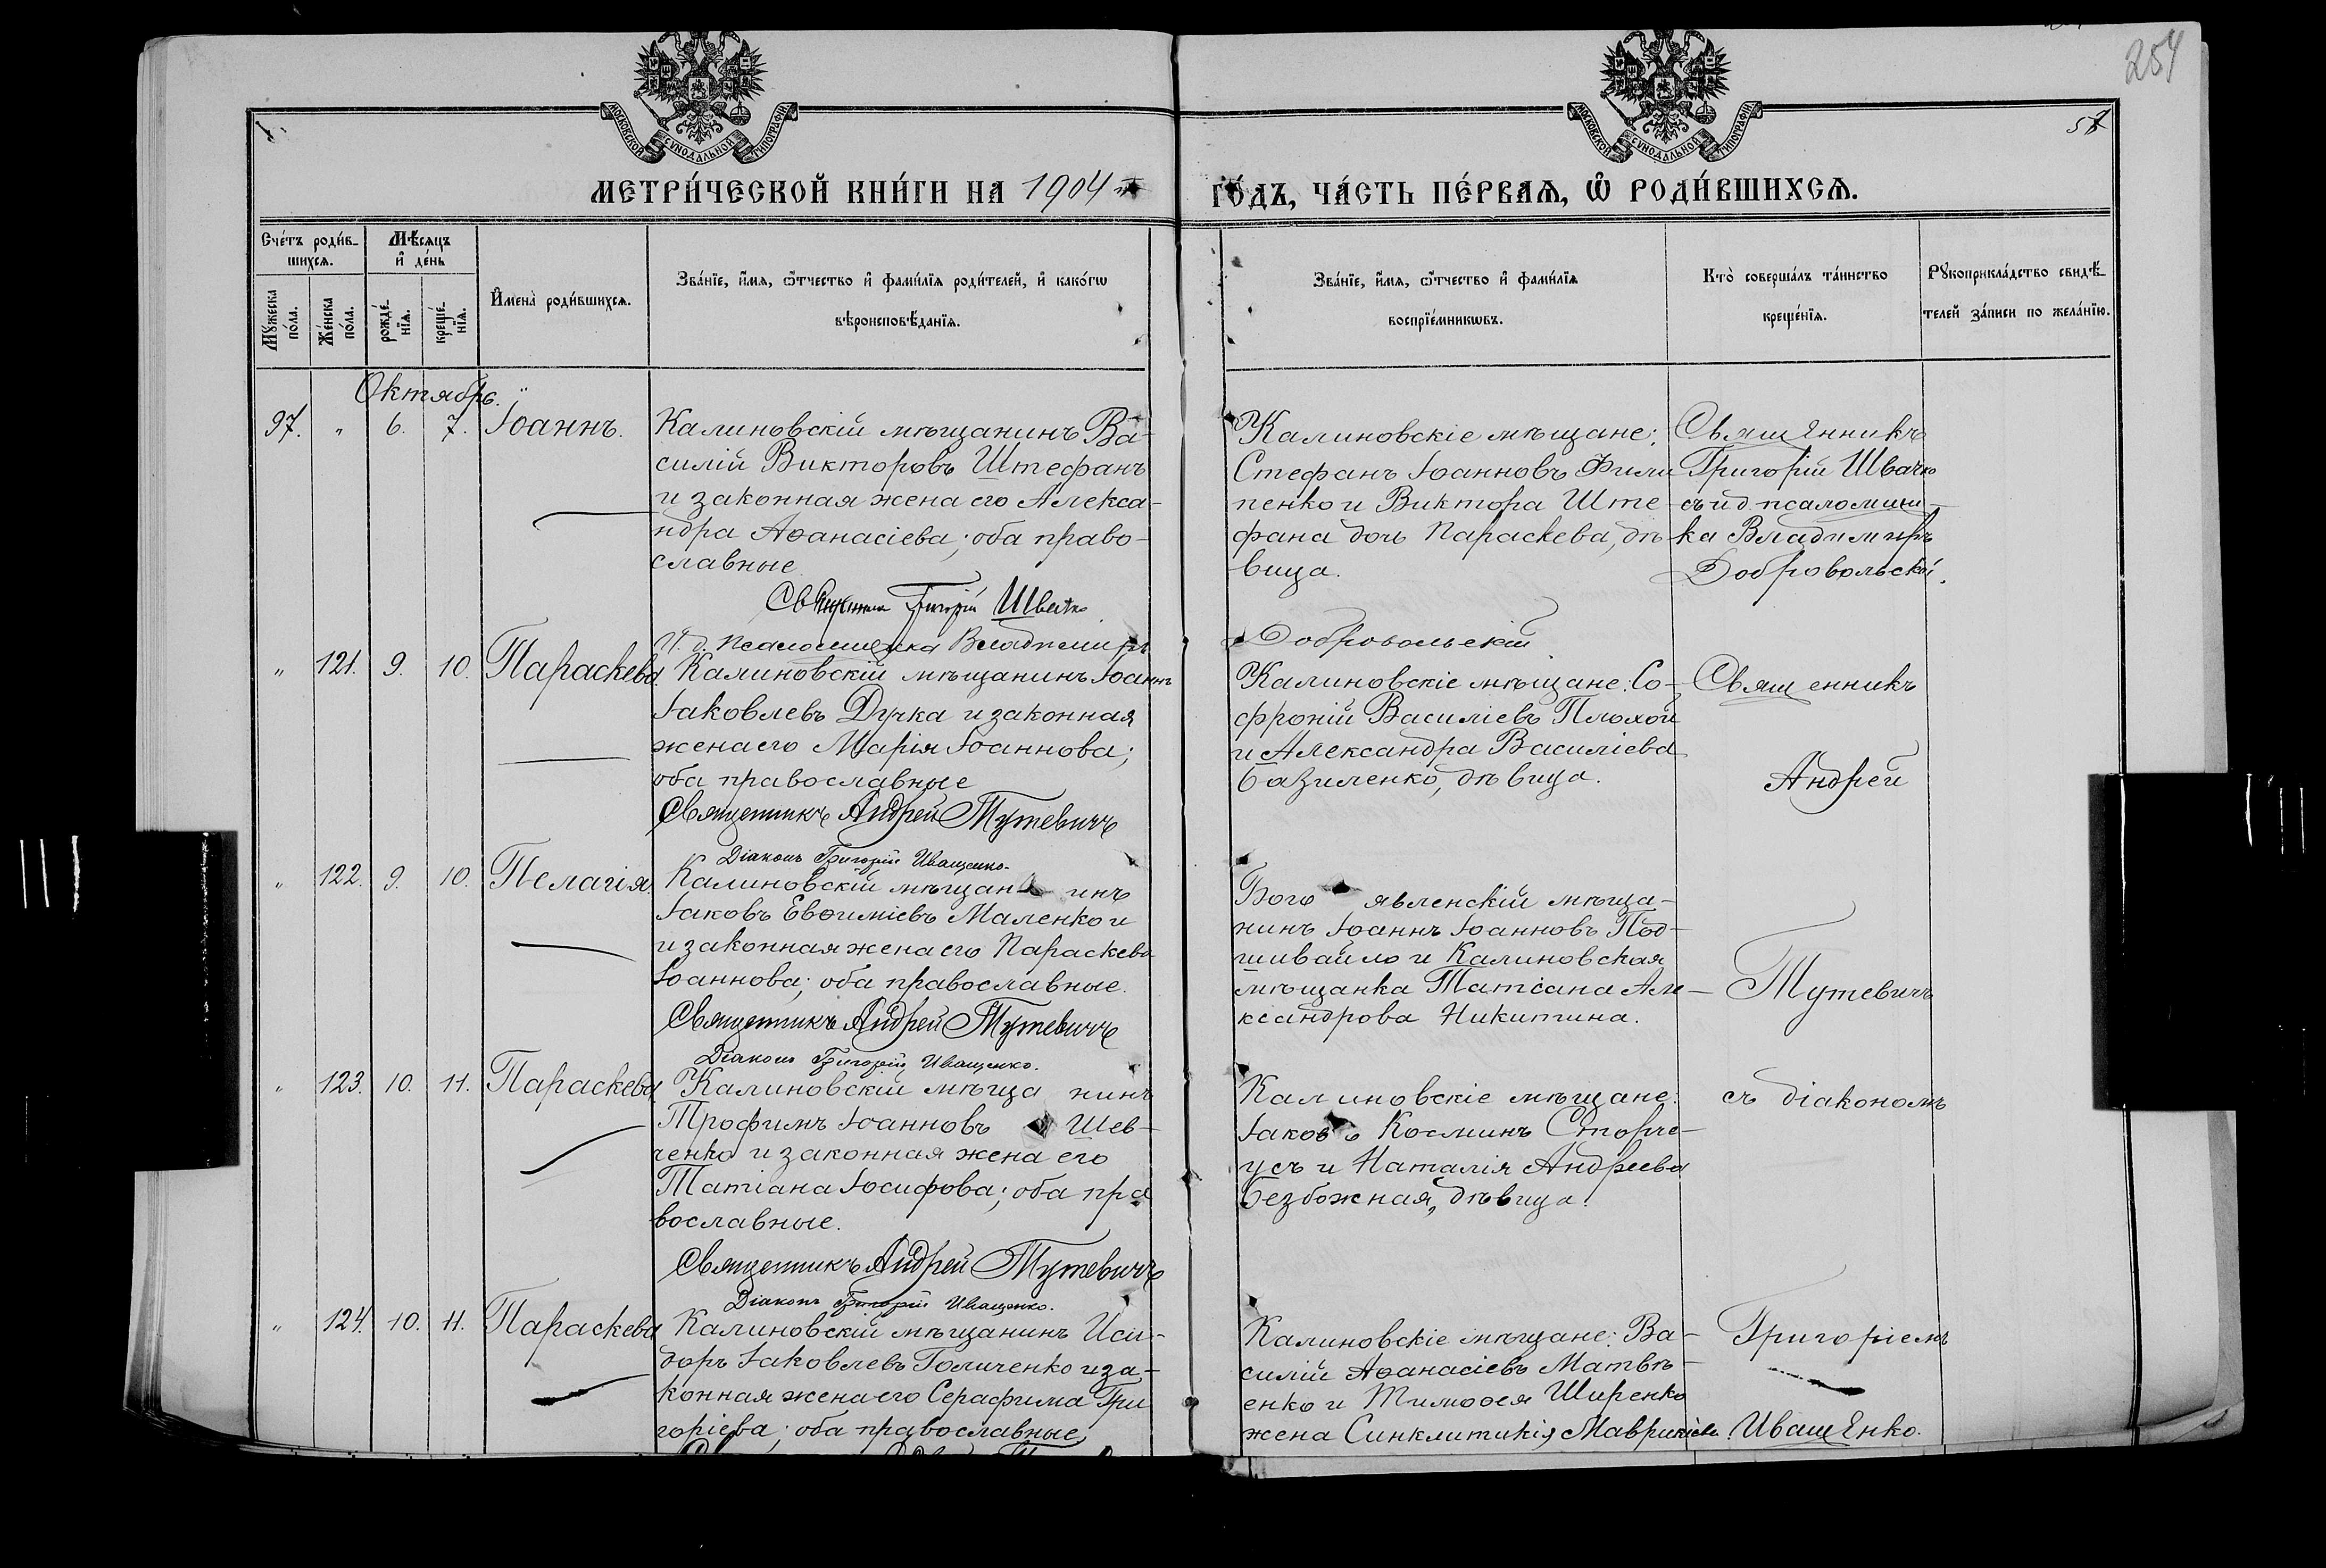 254
57
МОСКОВСКОЙ СѴНОДАЛЬНОЙ ТИПОГРАФІИ
МОСКОВСКОЙ СѴНОДАЛЬНОЙ ТИПОГРАФІИ
МЕТРИ́ЧЕСКОЙ КНИ́ГИ НА 1904 й
ГО́ДЪ, ЧА́СТЬ ПЕ́РВАѦ, Ѡ РОДИ́ВШИХСѦ.
Сче́тъ роди́в-
шихсѧ.
Мꙋ́жеска
по́ла.
Же́нска
по́ла.
Мѣ́сѧцъ
и҆ де́нь
рожде́-
нїѧ.
креще́-
нїѧ.
И҆мена̀ роди́вшихсѧ.
Зва́нїе, и҆́мѧ, ѻ҆́тчество и҆ фами́лїѧ роди́телей, и҆ како́гѡ
вѣроисповѣ́данїѧ.
Зва́нїе, и҆́мѧ, ѻ҆́тчество и҆ фами́лїѧ
воспрїе́мникѡвъ.
Кто̀ соверша́лъ та́инство
креще́нїѧ.
Рꙋкоприкла́дство свидѣ́-
телей за́писи по жела́нїю.
Октябрь.
97. " 6. 7. Іоаннъ.
Калиновскій мѣщанинъ Ва-
силій Викторовъ Штефанъ
и законная жена его Алекса-
ндра Аѳанасіева; оба право-
славные.
Священникъ Григорій Швачко
И. д. псаломщика Владиміръ
Добровольскій
Калиновскіе мѣщане:
Стефанъ Іоанновъ Фили
пенко и Виктора Ште-
фана дочь Параскева, дѣ-
вица.
Священникъ
Григорій Швачко
съ и д. псаломщи-
ка Владиміръ
Добровольскій.
" 121. 9. 10. Параскева.
Калиновскій мѣщанинъ Іоаннъ
Іаковлевъ Дучка и законная
жена его Марія Іоаннова;
оба православные
Священникъ Андрей Тутевичъ
Діаконъ Григорій Иващенко.
Калиновскіе мѣщане: Со-
фроній Василіевъ Плохой
и Александра Василіева
Базиленко, дѣвица.
Священникъ
Андрей
" 122. 9. 10. Пелагія
Калиновскій мѣщанинъ
Іаковъ Евѳиміевъ Маленко и
и законная жена его Параскева
Іоаннова; оба православные.
Священникъ Андрей Тутевичъ
Діаконъ Григорій Иващенко.
Богоявленскій мѣща-
нинъ Іоаннъ Іоанновъ Под-
шивайло и Калиновская
мѣщанка Татіана Але-
ксандрова Никитина.
Тутевичъ
" 123. 10. 11. Параскева.
Калиновскій мѣщанинъ
Трофимъ Іоанновъ Шев-
ченко и законная жена его
Татіана Іосифова; оба пра
вославные.
Священникъ Андрей Тутевичъ
Діаконъ Григорій Иващенко.
Калиновскіе мѣщане:
Іаковъ Косминъ Сторче-
усъ и Наталія Андреева
Безбожная, дѣвица.
съ діакономъ
" 124. 10. 11. Параскева
Калиновскій мѣщанинъ Иси-
доръ Іаковлевъ Голиченко и за-
конная жена его Серафима Гри
горіева; оба православные
Калиновскіе мѣщане: Ва-
силій Аѳанасіевъ Матвѣ-
енко и Тимоѳея Ширенко
жена Синклитикія Маврикіева.
Григоріемъ
Иващенко.